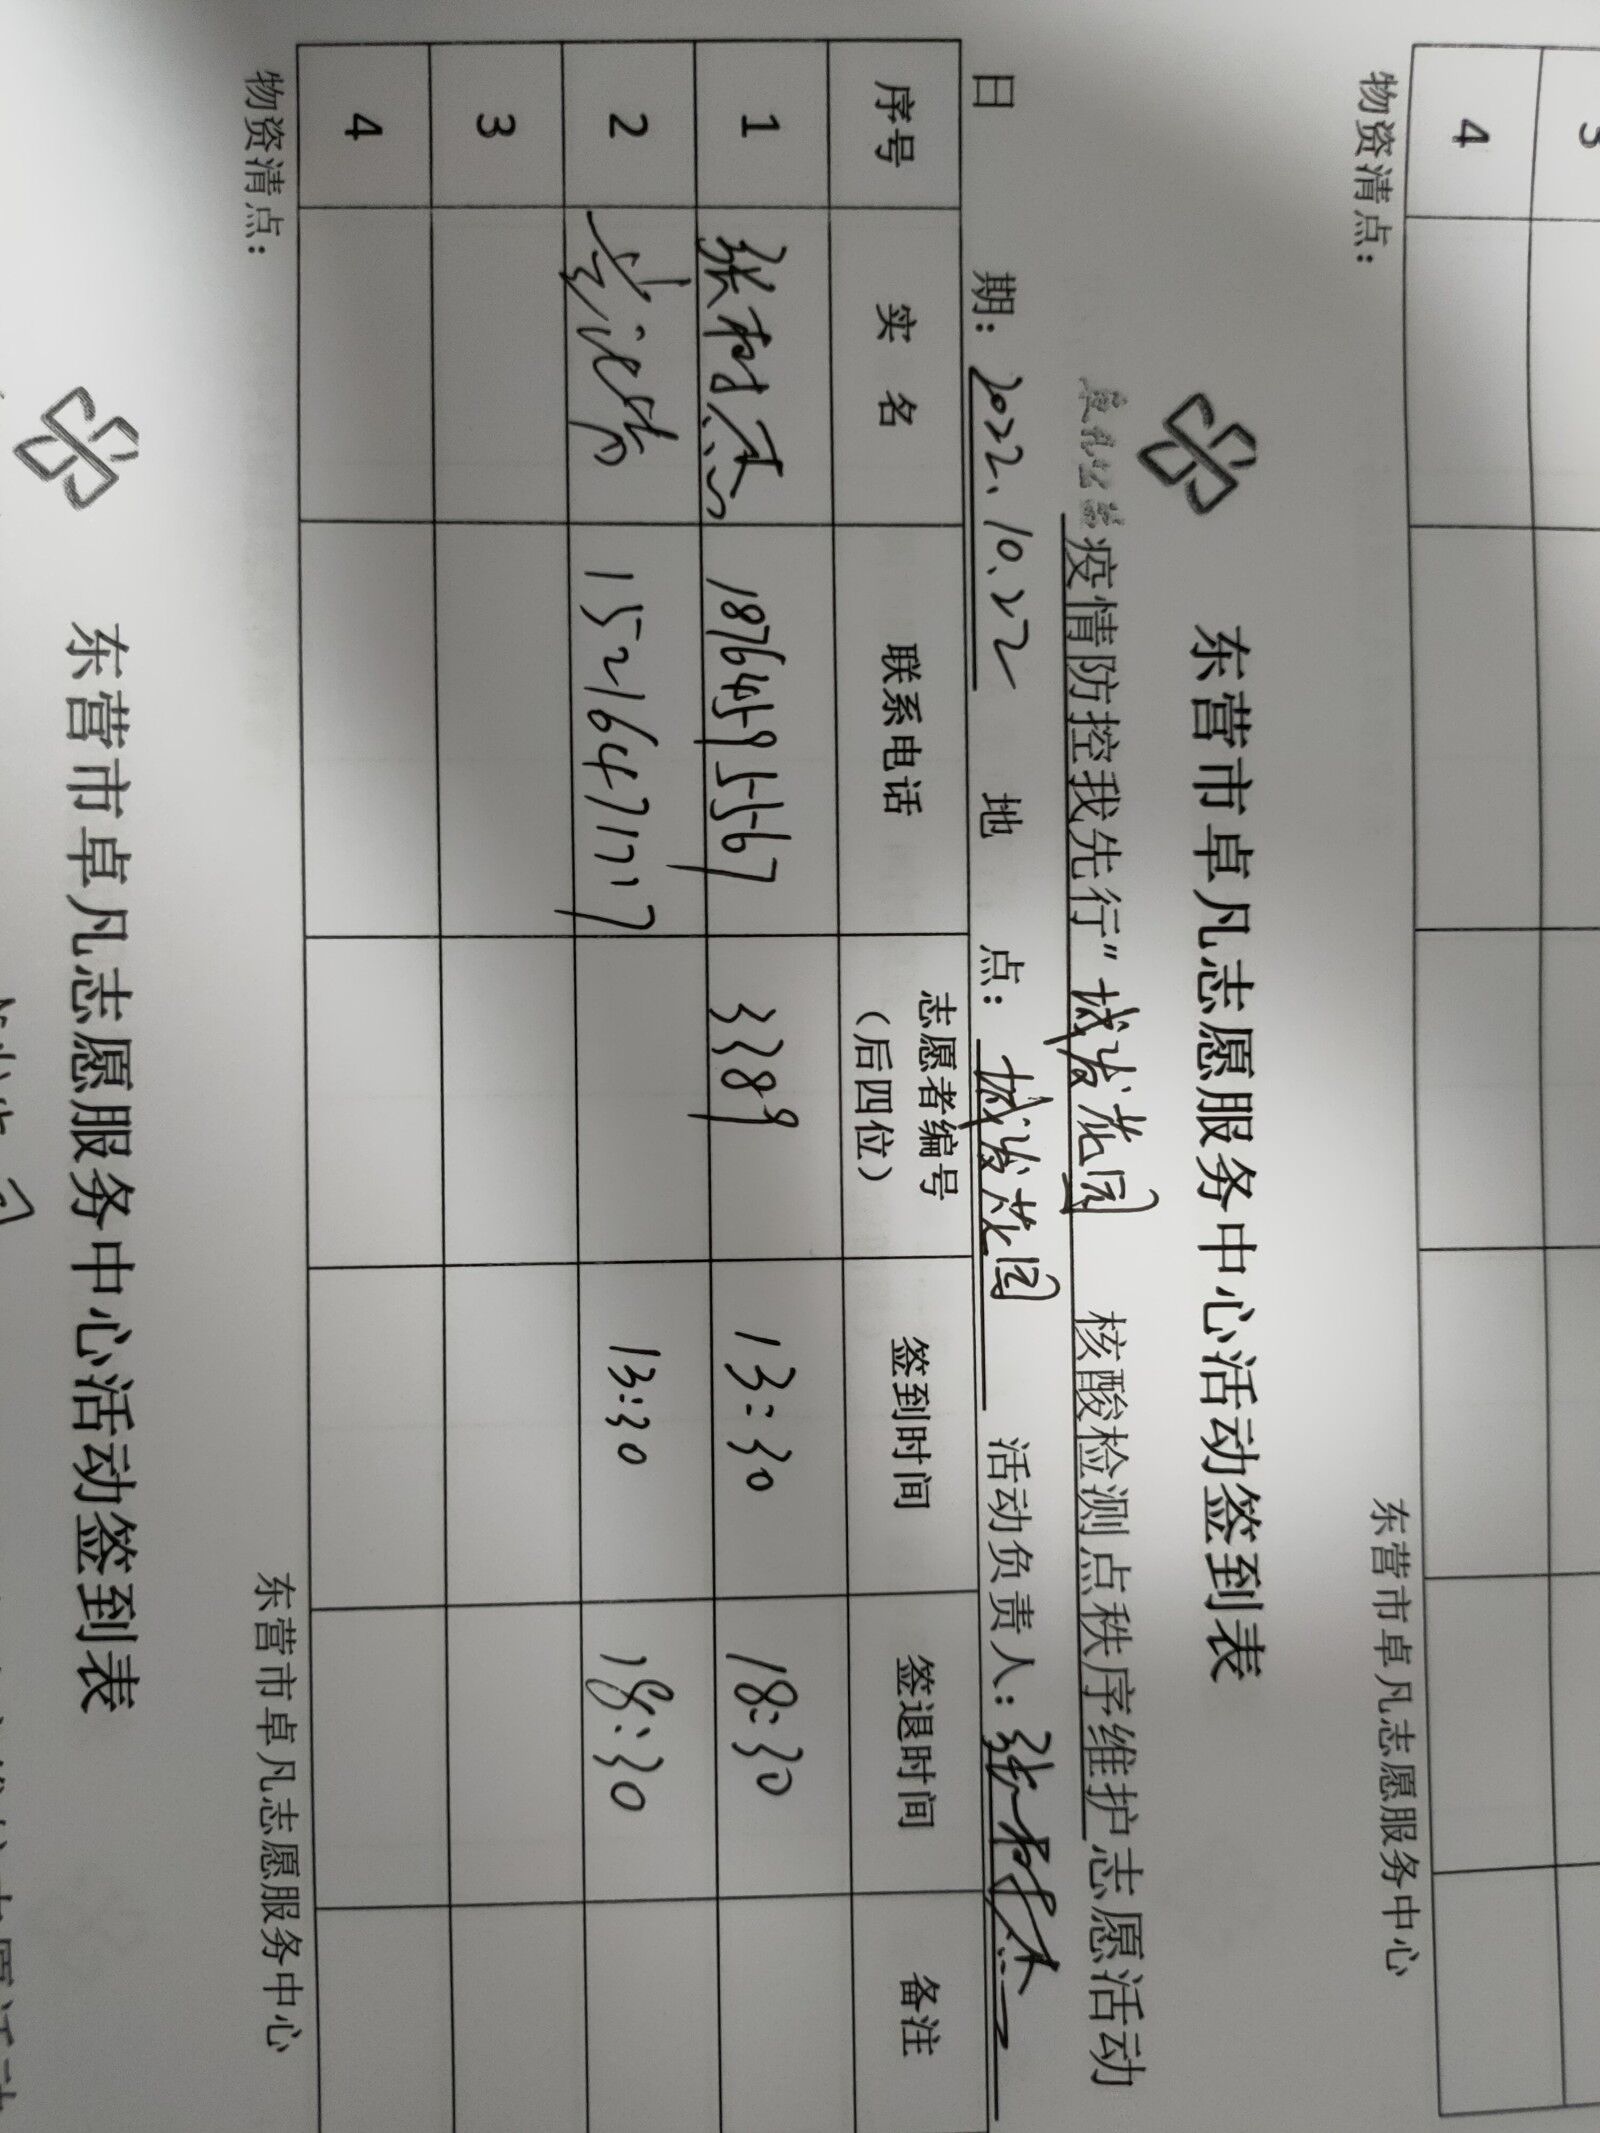 3
4
物资清点：
东营市卓凡志愿服务中心
东营市卓凡志愿服务中心活动签到表
疫情防控我先行”城发花园 核酸检测点秩序维护志愿活动
日 期：2022.10.22 地 点：城发花园 活动负责人：张树杰
序号 实 名 联系电话 志愿者编号（后四位） 签到时间 签退时间 备注
1 张树杰 18764595567 3389 13:30 18:30
2 15216471717 13:30 18:30
3
4
物资清点：
东营市卓凡志愿服务中心
东营市卓凡志愿服务中心活动签到表